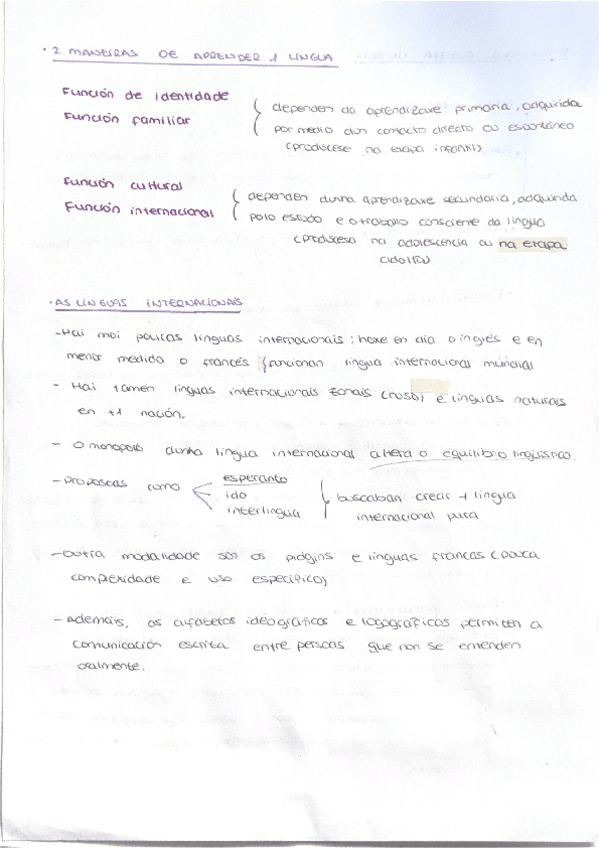 · 2 MANEIRAS DE APRENDER 1 LINGUA
Función de identidade
Función familiar
dependen da aprendizaxe primaria, adquirida
por medio dun contacto directo ou espontáneo
(prodúcese na etapa infantil)
Función cultural
Función internacional
dependen dunha aprendizaxe secundaria, adquirida
polo estudo e o traballo consciente da lingua
(prodúcese na adolescencia ou na etapa
adulta)
· AS LINGUAS INTERNACIONAIS
- Hai moi poucas linguas internacionais: hoxe en día o inglés e en
menor medida o francés (funcionan lingua internacional mundial
- Hai tamén linguas internacionais zonais (ruso) e linguas naturais
en +1 nación.
- O monopolio dunha lingua internacional altera o equilibrio lingüístico.
- Propostas como
esperanto
ido
interlingua
buscaban crear 1 lingua
internacional pura
- Outra modalidade son os pidgins e linguas francas (pouca
complexidade e uso específico)
- Ademais, os alfabetos ideográficos e logográficos permiten a
comunicación escrita entre persoas que non se entenden
oralmente.